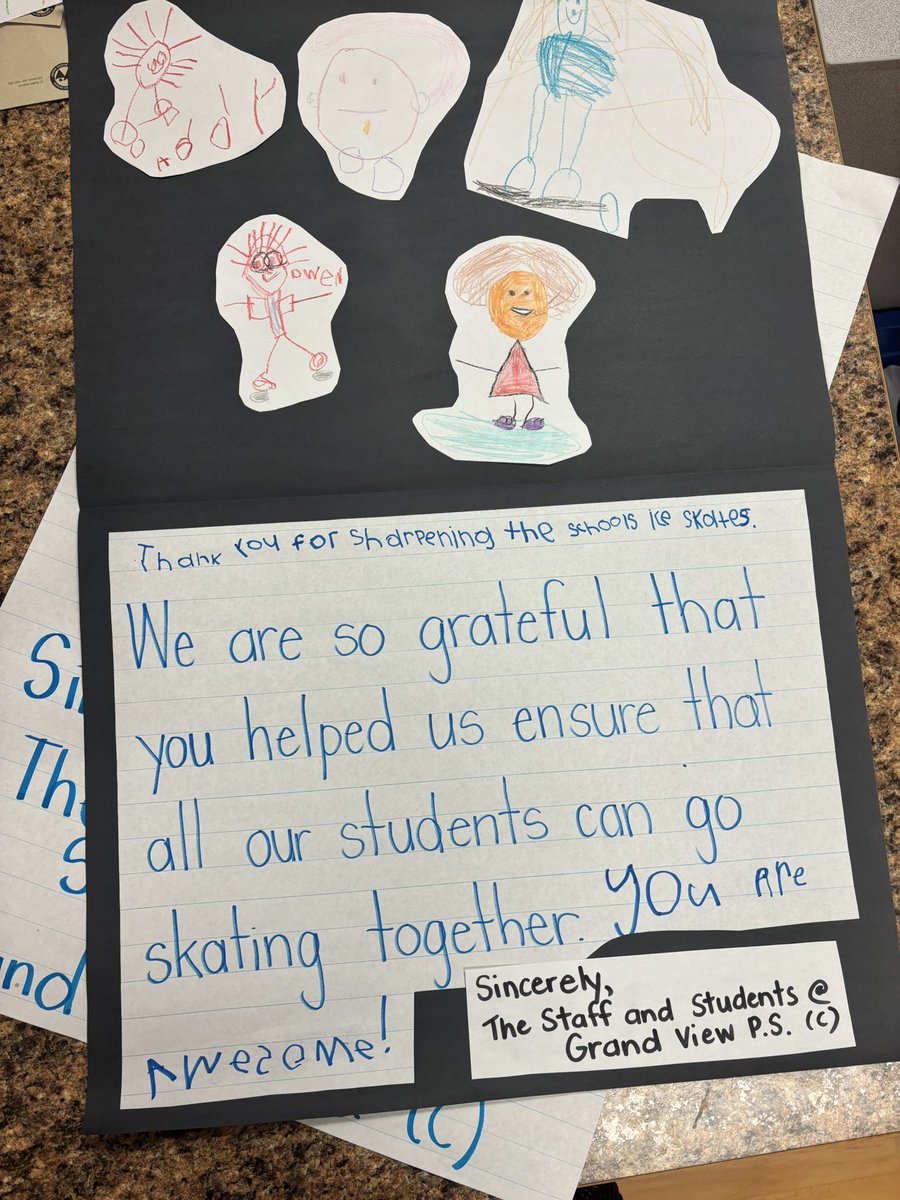 Addy
owen
Thank you for sharpening the schools ice skates.
We are so grateful that
you helped us ensure that
all our students can go
skating together. you are
Awesome!
Sincerely,
The Staff and Students @
Grand View P.S. (C)
Si
Th
S
and
(C)